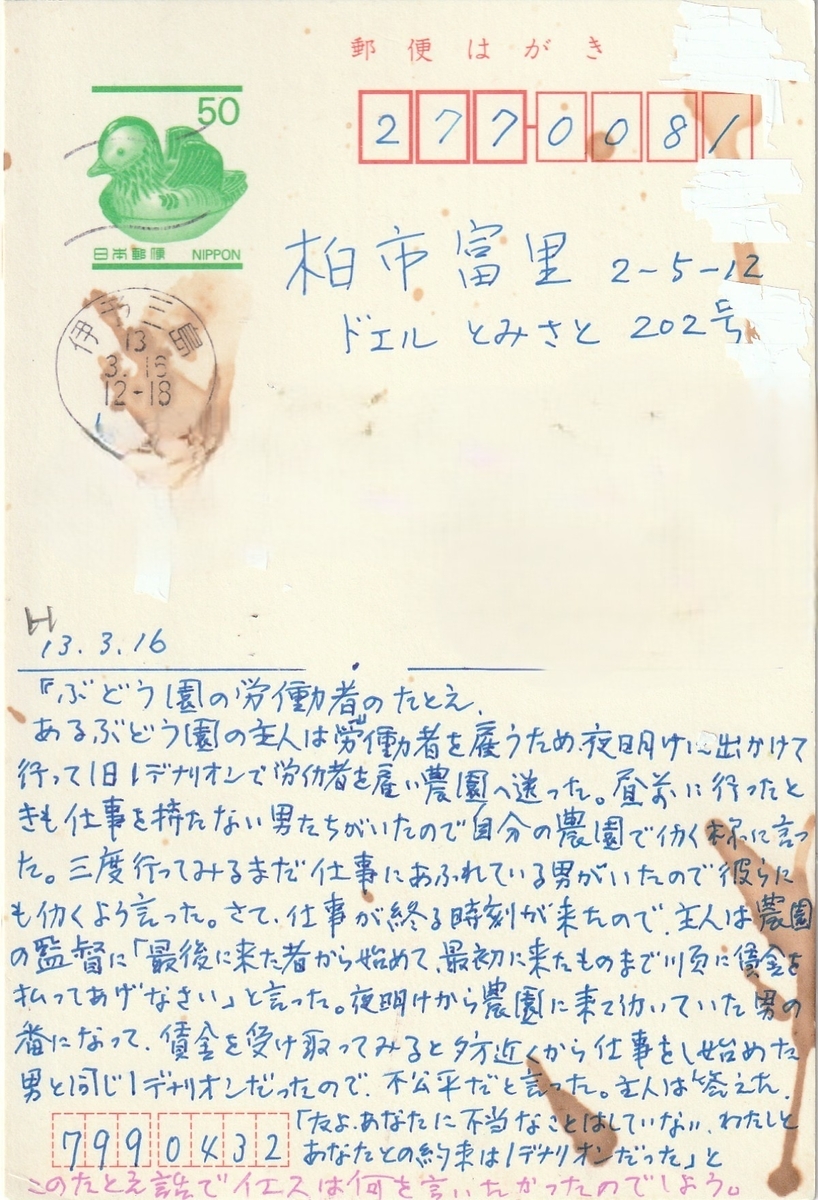 郵便はがき
50
2770081
日本郵便 NIPPON
柏市富里 2-5-12
ドエル とみさと 202号
伊予三島
13
3.16
12-18
H
13.3.16
『ぶどう園の労働者のたとえ、
あるぶどう園の主人は労働者を雇うため、夜明けに出かけて
行って1日1デナリオンで労仂者を雇い農園へ送った。昼前に行ったと
きも仕事を持たない男たちがいたので「自分の農園で仂く様に言っ
た。三度行ってみるまだ仕事にあふれている男がいたので彼らに
も仂くよう言った。さて、仕事が終る時刻が来たので、主人は農園
の監督に「最後に来た者から始めて、最初に来たものまで順に賃金を
払ってあげなさい」と言った。夜明けから農園に来て仂いていた男の
番になって、賃金を受け取ってみると夕方近くから仕事をし始めた
男と同じ1デナリオンだったので、不公平だと言った。主人は答えた、
「友よ、あなたに不当なことはしていない、わたしと
あなたとの約束は1デナリオンだった」と
7990432
このたとえ話でイエスは何を言いたかったのでしょう。